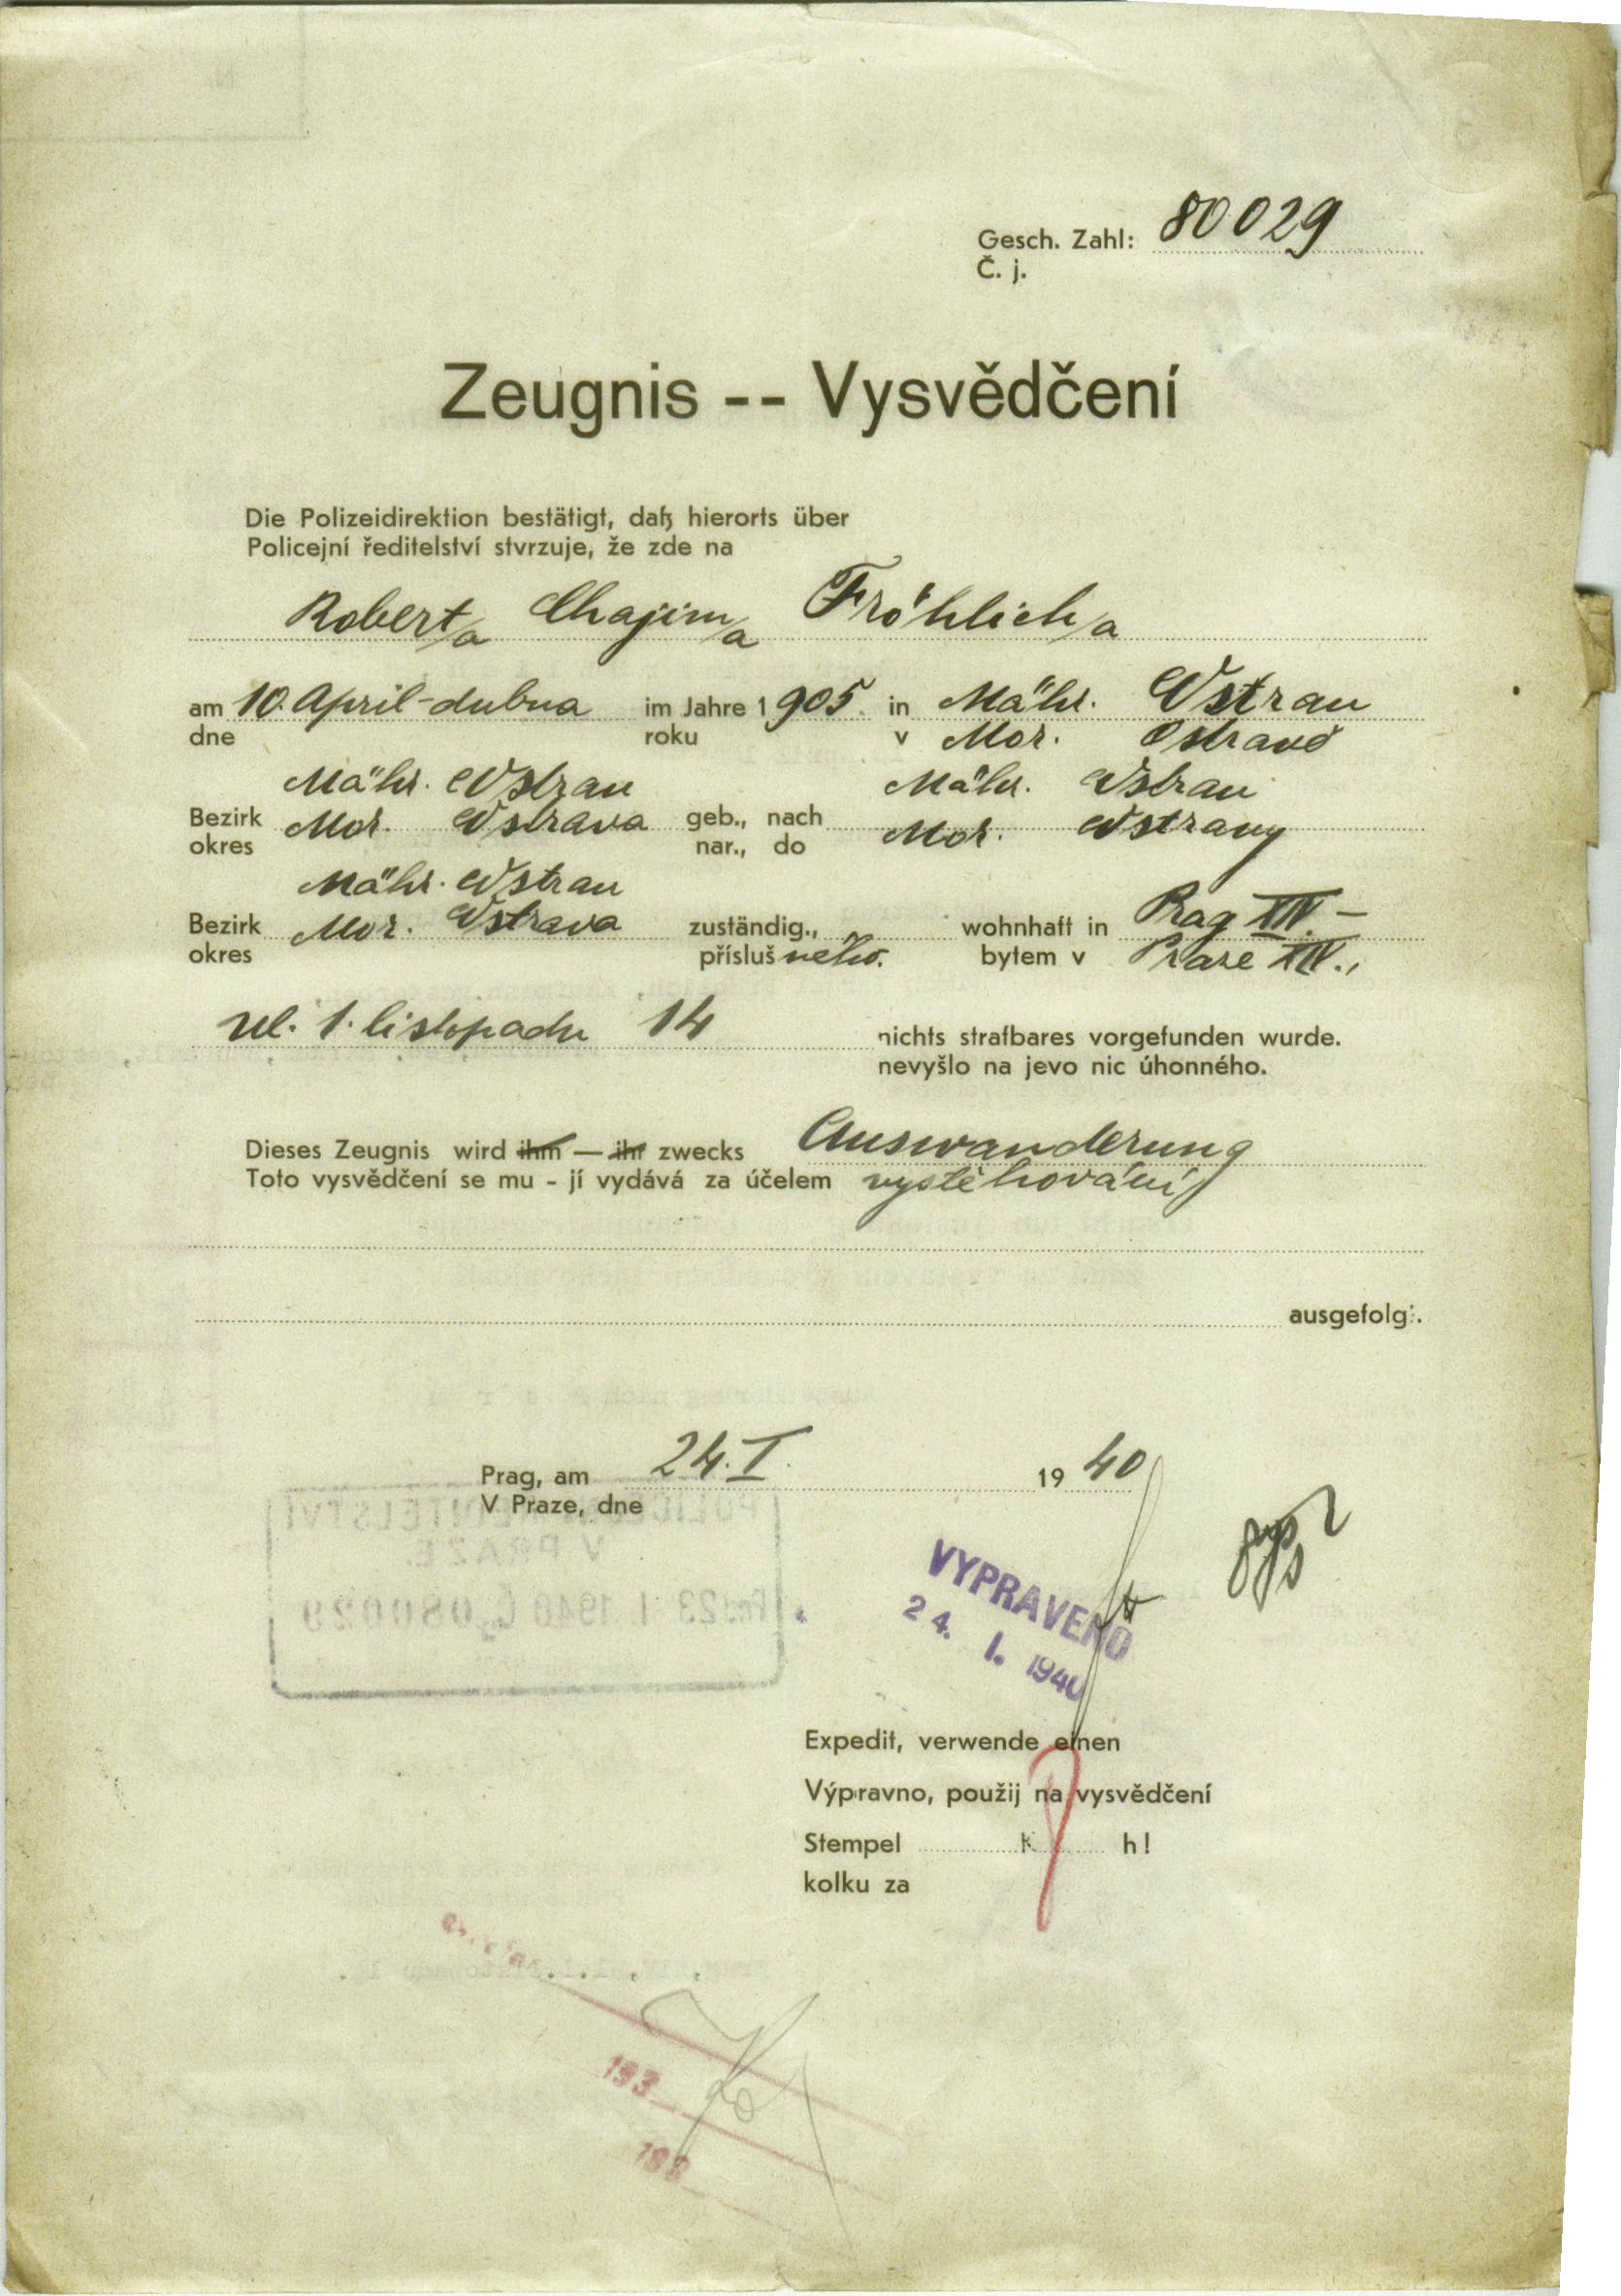 Gesch. Zahl: 80029
Č. j.
Zeugnis -- Vysvědčení
Die Polizeidirektion bestätigt, daß hierorts über
Policejní ředitelství stvrzuje, že zde na
Robert/a Chajim/a Fröhlich/a
am 10. April-dubna im Jahre 1905 in Mähr. Ostrau
dne roku v Mor. Ostravě
Mähr. Ostrau Mähr. Ostrau
Bezirk Mor. Ostrava geb., nach Mor. Ostravy
okres nar., do
Mähr. Ostrau
Bezirk Mor. Ostrava zuständig., wohnhaft in Prag XIV. –
okres přísluš ného. bytem v Praze XIV.,
ul. 1. listopadu 14 nichts strafbares vorgefunden wurde.
nevyšlo na jevo nic úhonného.
Dieses Zeugnis wird ihm — ihr zwecks Auswanderung
Toto vysvědčení se mu - jí vydává za účelem vystěhování
ausgefolgt.
Prag, am 24. I. 1940
V Praze, dne
POLICEJNÍ ŘEDITELSTVÍ
V PRAZE.
23 I 1940 Č 080029
VYPRAVENO
24. I. 1940
Expedit, verwende einen
Výpravno, použij na vysvědčení
Stempel K h!
kolku za
193
193